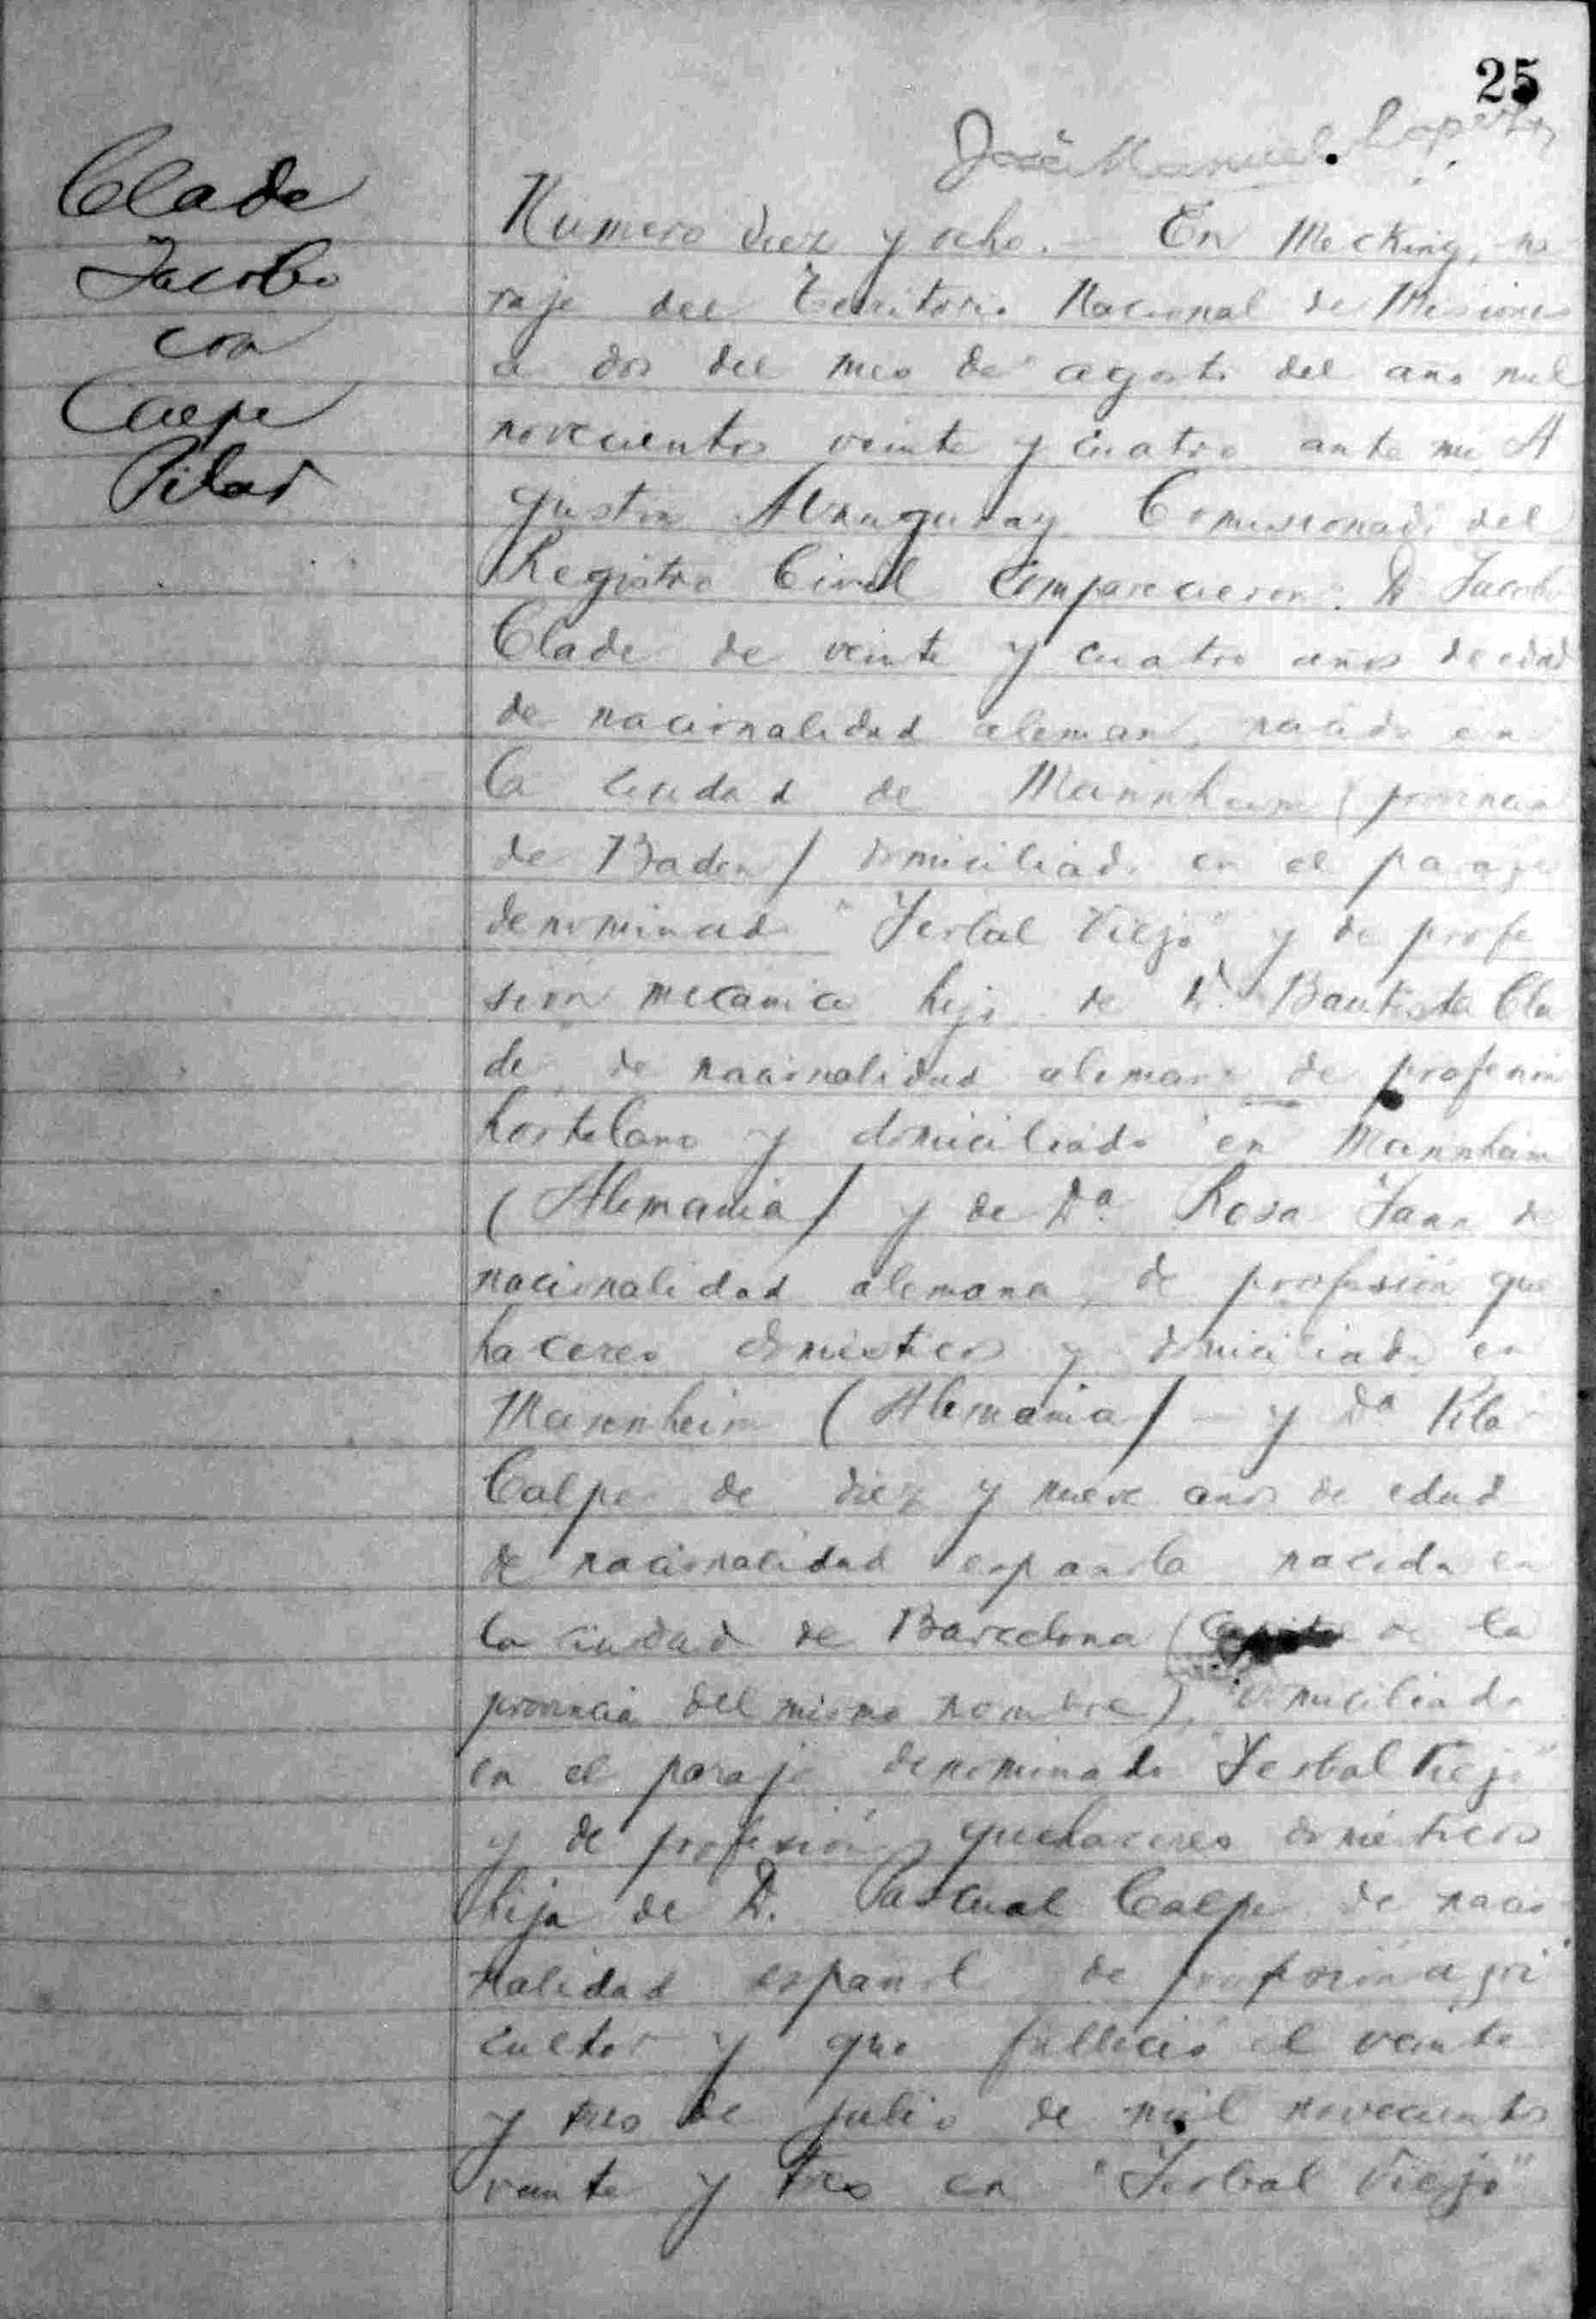 25
José Manuel
Clade
Jacobo
con
Calpe
Pilar
Numero diez y ocho. — En Mecking, pa
raje del Territorio Nacional de Misiones
a dos del mes de agosto del año mil
novecientos veinte y cuatro ante mi, A
gustin Comisionado del
Registro Civil Comparecieron: D. Jacobo
Clade de veinte y cuatro años de edad
de nacionalidad aleman, nacido en
la ciudad de Mannheim (provincia
de Baden) domiciliado en el paraje
denominado "Yerbal Viejo" y de profe
sion mecanico hijo de D. Bautista Cla
de, de nacionalidad aleman de profesion
hortelano y domiciliado en Mannheim
(Alemania) y de Da. Rosa Jann de
nacionalidad alemana, de profesión que
haceres domésticos y domiciliada en
Mannheim (Alemania) — y Da Pilar
Calpe de diez y nueve años de edad
de nacionalidad española nacida en
la ciudad de Barcelona ( de la
provincia del mismo nombre), domiciliada
en el paraje denominado "Yerbal Viejo"
y de profesión quehaceres domésticos
hija de D. Pascual Calpe de nacio
nalidad español de profesión agri
cultor y que falleció el veinte
y tres de julio de mil novecientos
veinte y tres en "Yerbal Viejo"